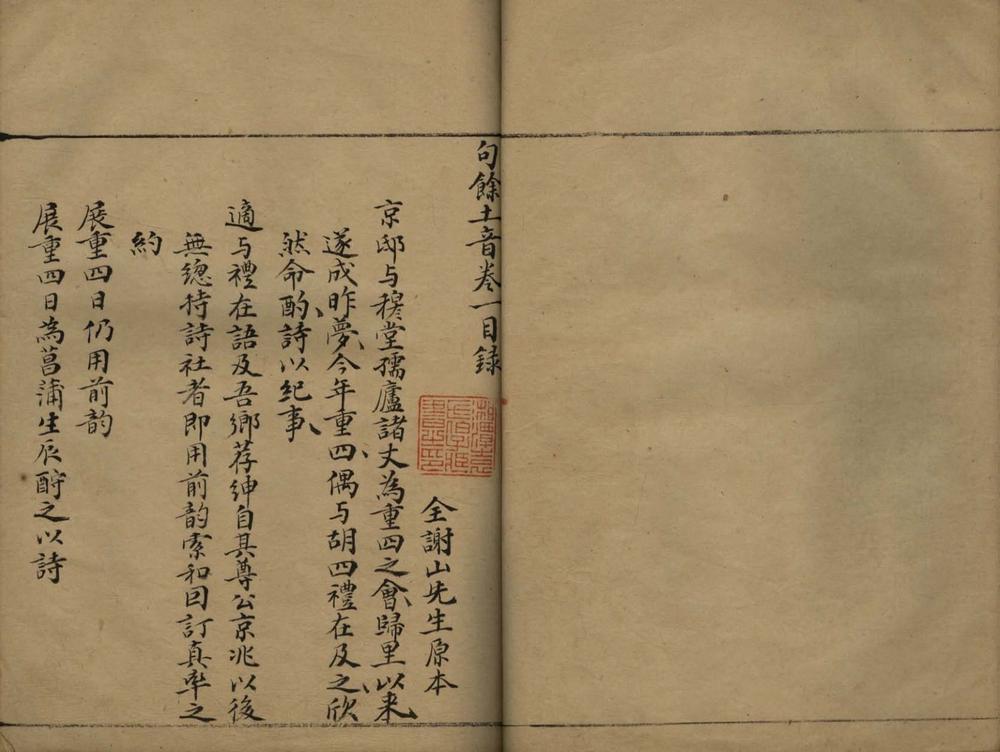 句餘土音卷一目録
全謝山先生原本
京邸与穆堂孺廬諸丈為重四之會歸里以来
遂成昨夢今年重四偶与胡四禮在及之欣
然命酌詩以紀事
適与禮在語及吾鄉荐紳自其尊公京兆以後
無總持詩社者即用前韵索和因訂真率之
約
展重四日仍用前韵
展重四日為菖蒲生辰酹之以詩